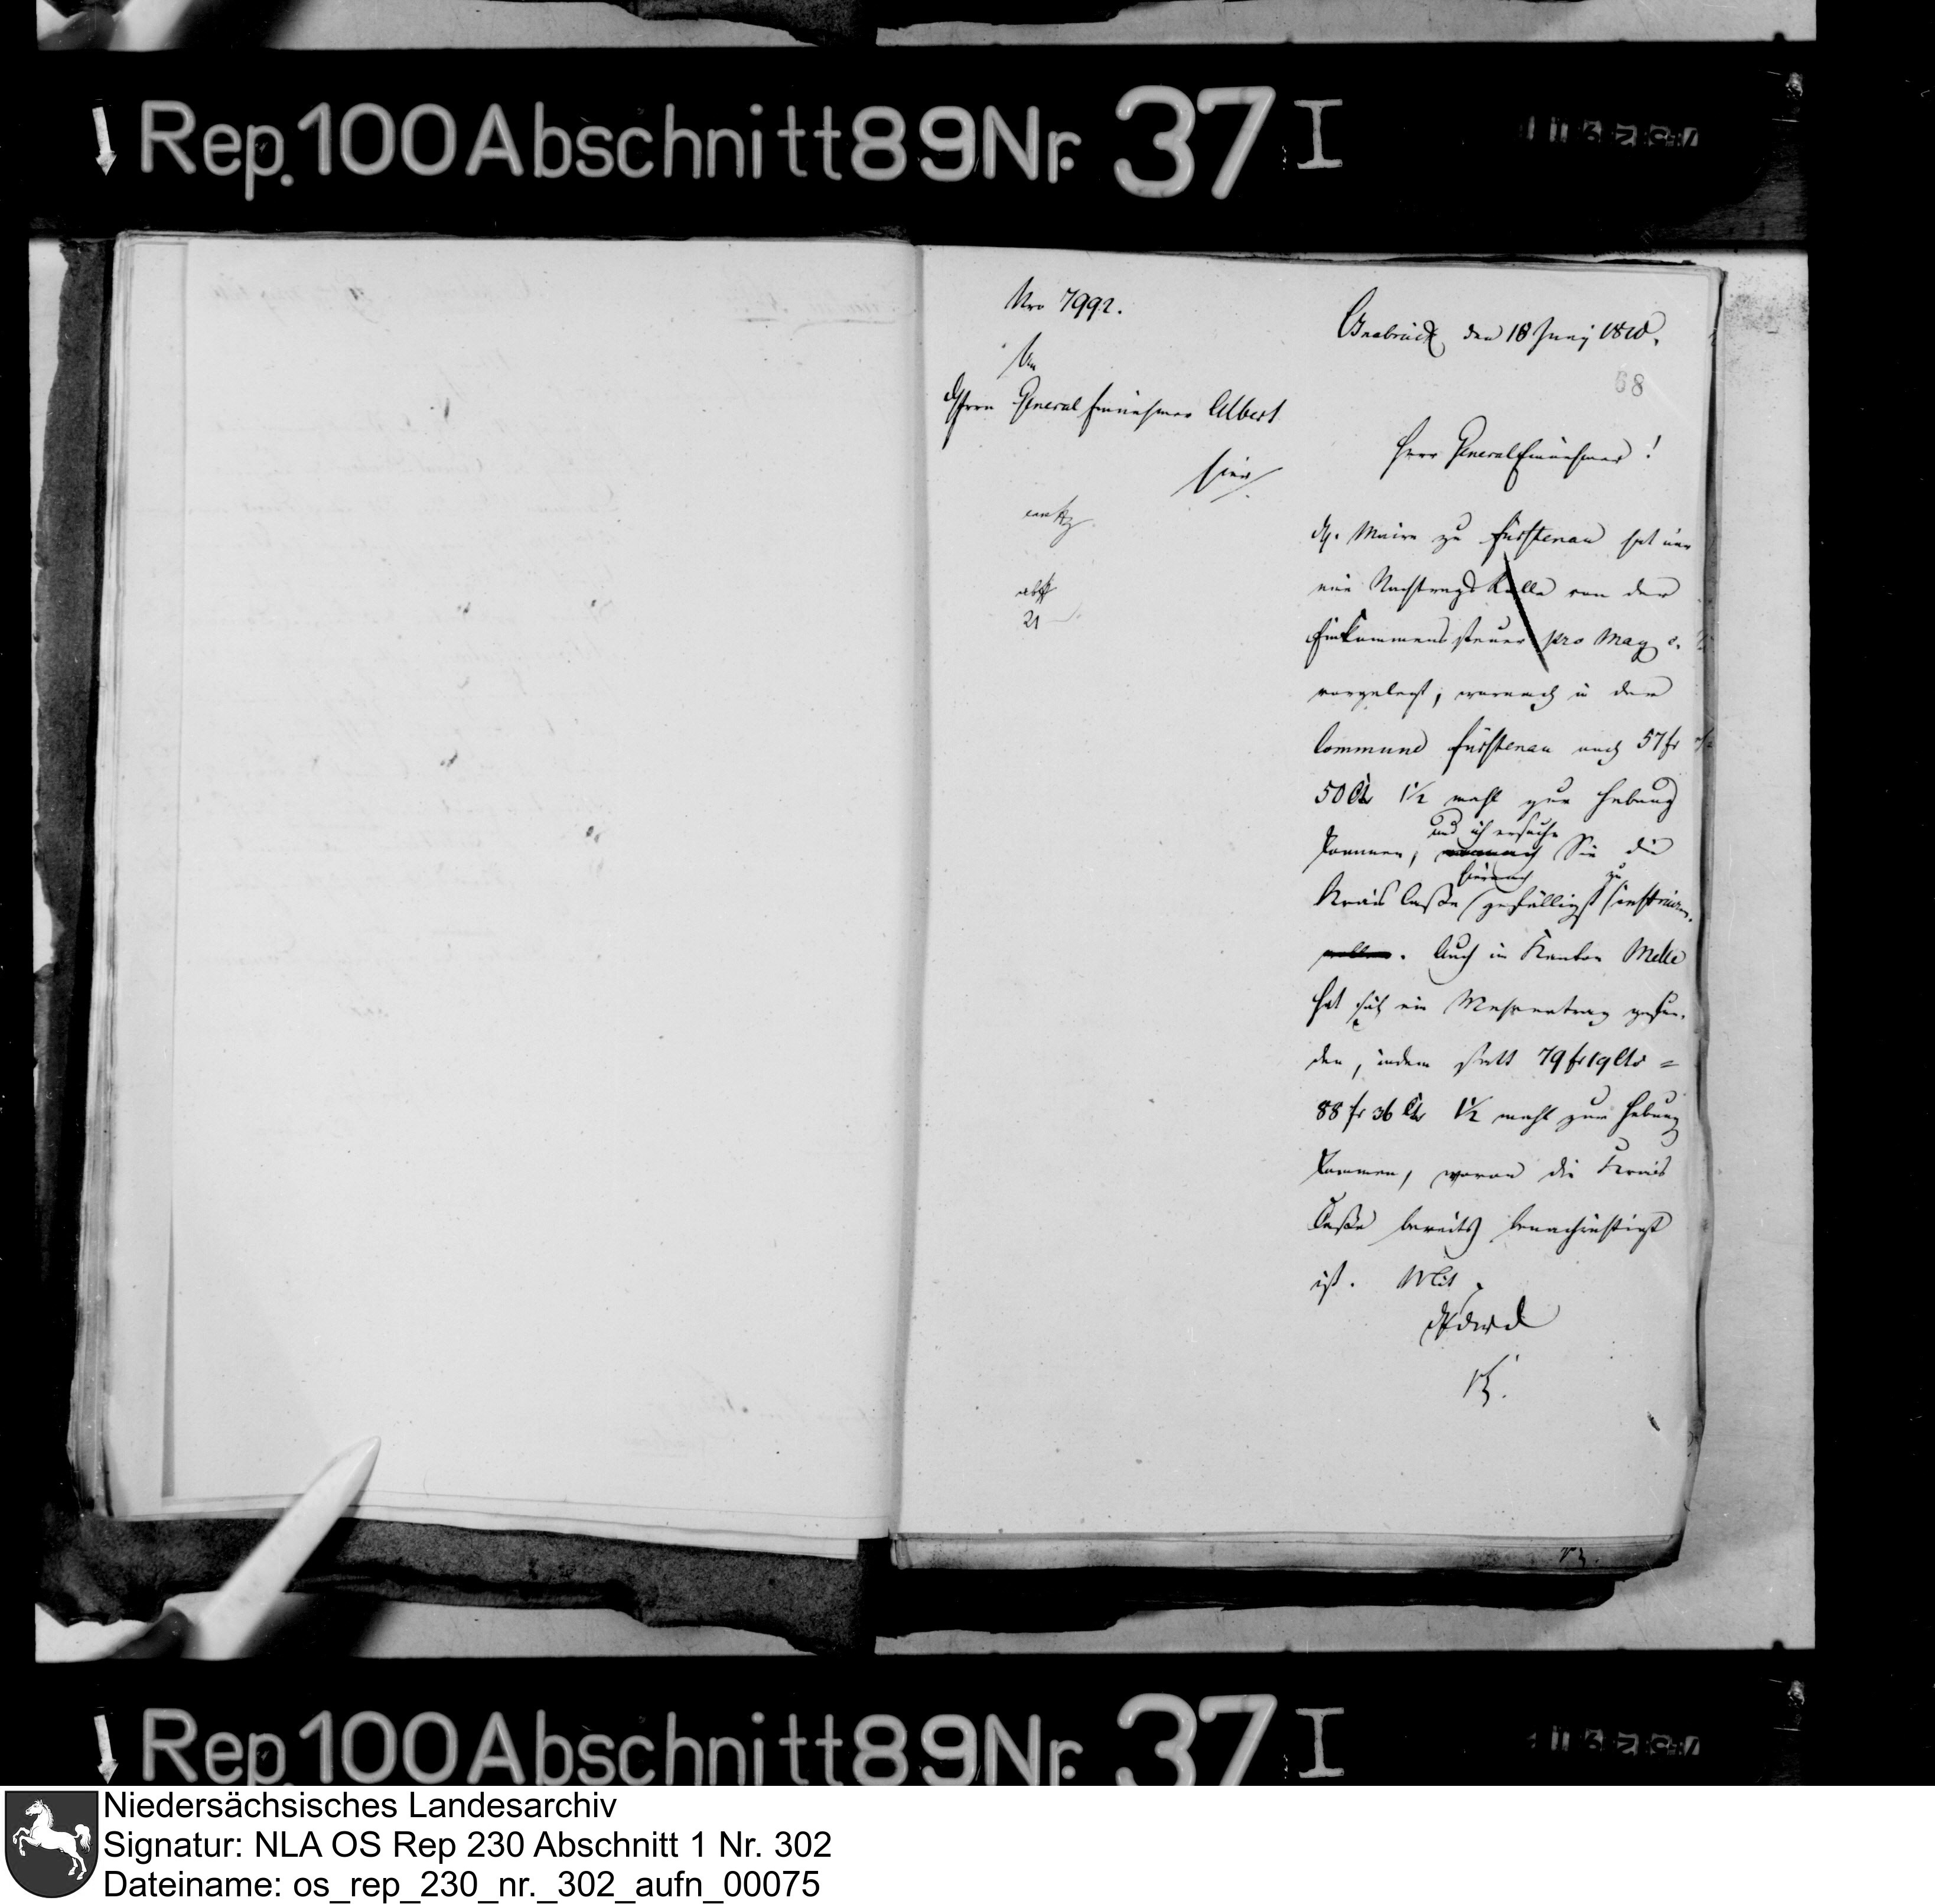 Rep. 100 Abschnitt 89 Nr. 37 I
Nro 7992.
An
Herrn General Einnehmer Albert
hier
abg
21
Osnabrück den 18 Juny 1810.
68
Herr General Einnehmer!
Der Maire zu Fürstenau hat mir
eine Nachtrags Rolle von der
Einkommensteuer pro May c.
vorgelegt, wornach in der
Commune Fürstenau noch 57 fr
50 Cts 1½ mahl zur Hebung
kommen, und ich ersuche Sie die
Kreis Casse hiernach gefälligst zu instruiren.
wollen. Auch im Kanton Melle
hat sich ein Mehrertrag gefun-
den, indem statt 79 fr 19 Cts =
88 fr 36 Cts 1½ mahl zur Hebung
kommen, wovon die Kreis
Casse bereits benachrichtigt
ist. Mit
Rep. 100 Abschnitt 89 Nr. 37 I
Niedersächsisches Landesarchiv
Signatur: NLA OS Rep 230 Abschnitt 1 Nr. 302
Dateiname: os_rep_230_nr._302_aufn_00075